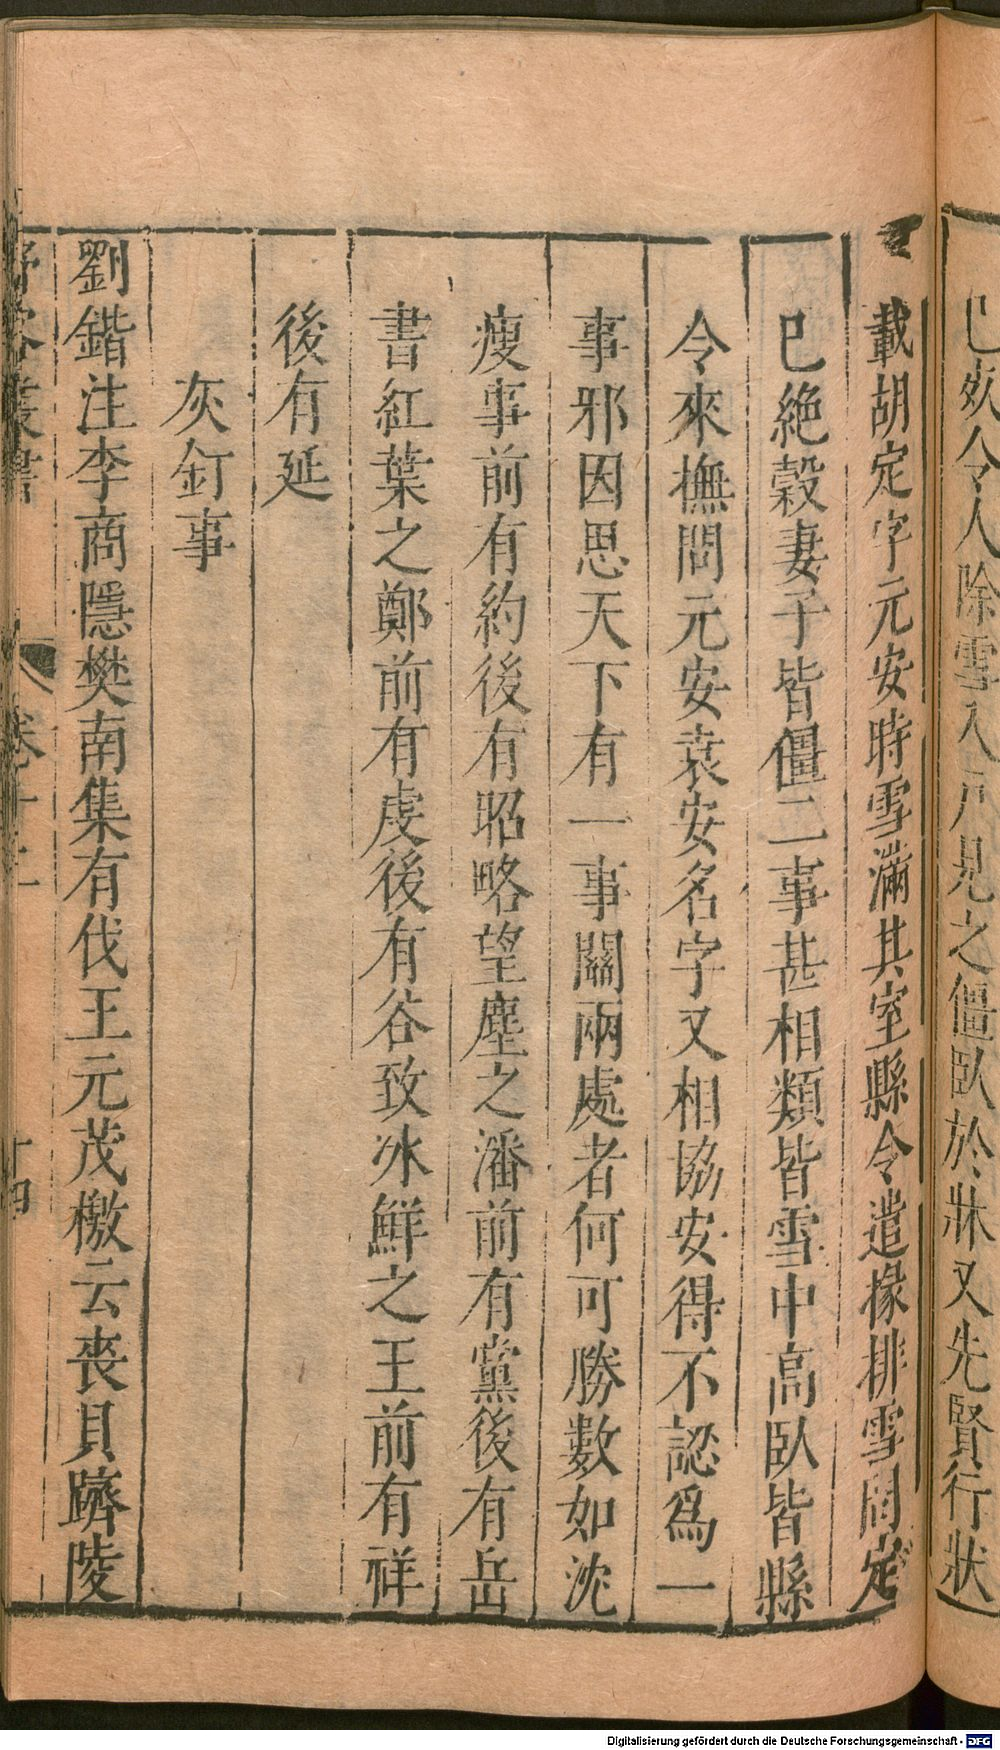 巳疾令人除雪入戸見之僵臥於牀又先賢行狀
載胡定字元安時雪滿其室縣令遣掾排雪問定
巳絶穀妻子皆僵二事甚相類皆雪中高臥皆縣
令來撫問元安袁安名字又相協安得不認爲一
事邪因思天下有一事關兩處者何可勝數如沈
瘦事前有約後有昭略望塵之潘前有黨後有岳
書紅葉之鄭前有虔後有谷致冰鮮之王前有祥
後有延
灰釘事
劉鍇注李商隱樊南集有伐王元茂檄云喪貝躋陵
野客叢書 卷十二 十四
Digitalisierung gefördert durch die Deutsche Forschungsgemeinschaft - DFG